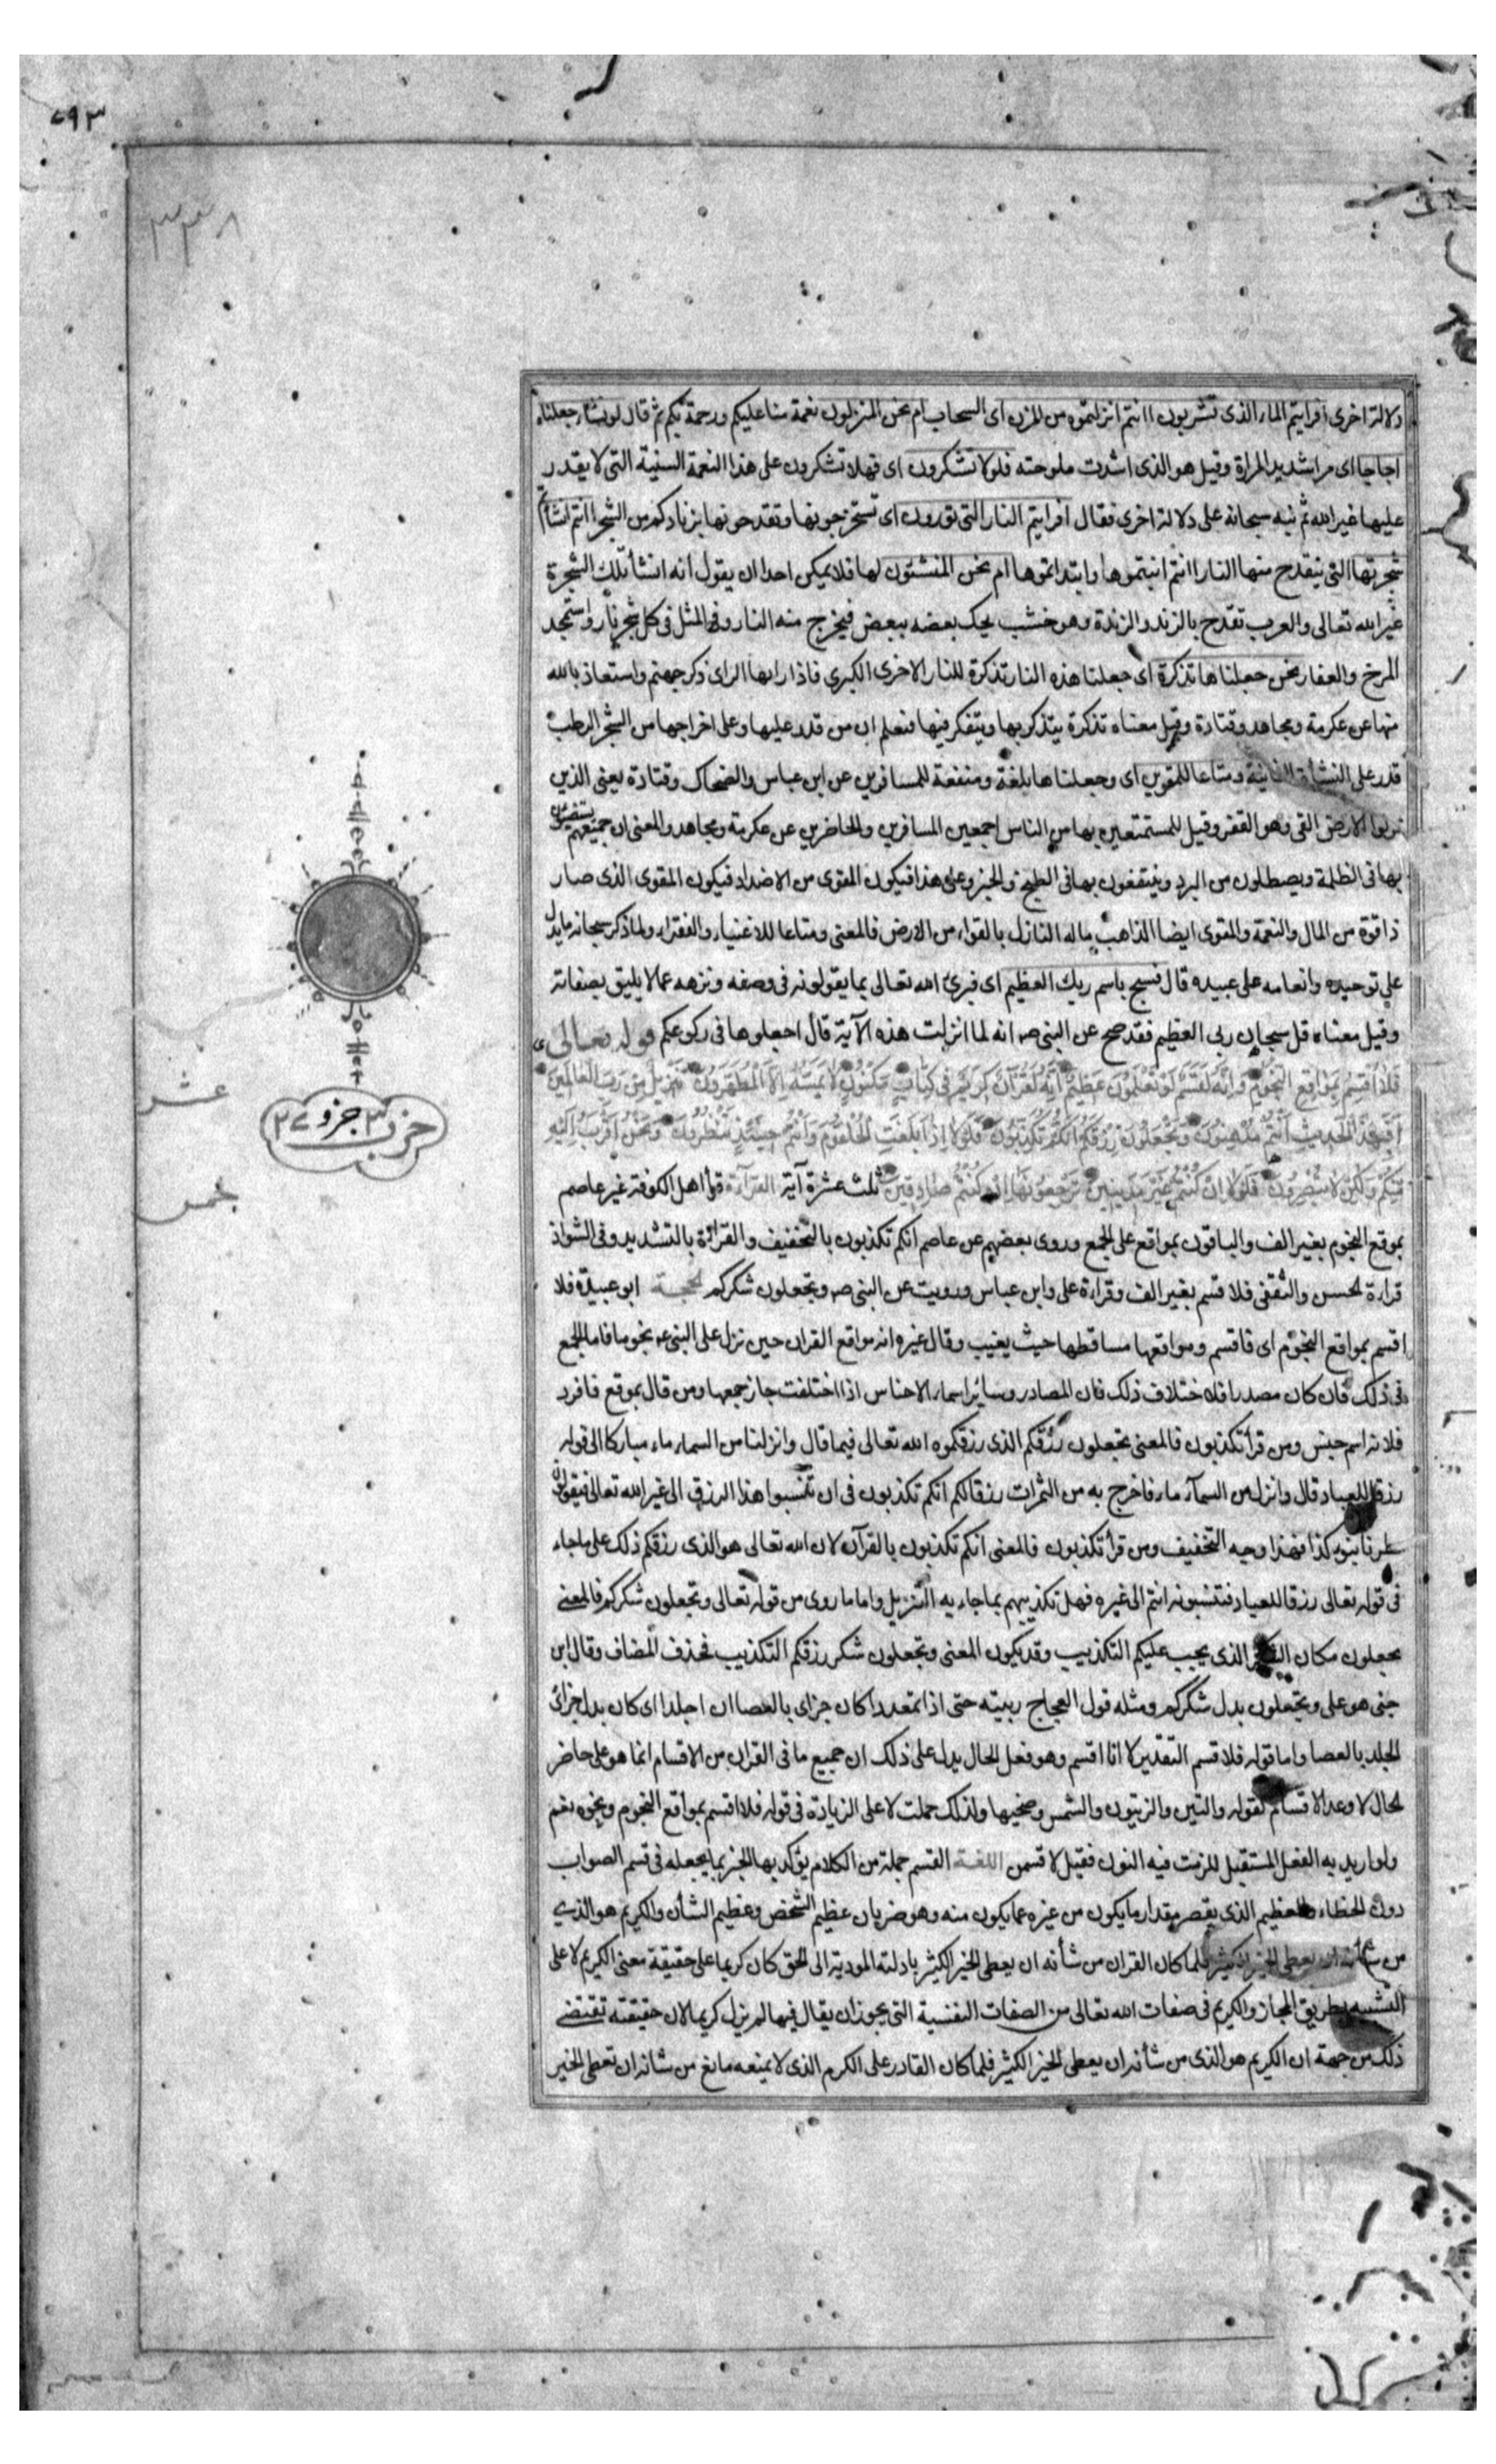 ٧٩٣
٣٣٨
دلالة اخرى افرايتم الماء الذى تشربون اانتم انزلتموه من المزن اى السحاب ام نحن المنزلون نعمة منا عليكم ورحمة بكم ثم قال لو نشاء جعلناه
اجاجا اى مرا شديد المرارة وقيل هو الذى اشتدت ملوحته فلولا تشكرون اى فهلا تشكرون على هذا النعمة السنية التى لا يقدر
عليها غير الله ثم نبه سبحانه على دلالة اخرى فقال افرايتم النار التى تورون اى تستخرجونها وتقدحونها بزنادكم من الشجر اانتم انشاتم
شجرتها التى ينقدح منها النار اانتم انبتموها وابتداتموها ام نحن المنشئون لها فلا يمكن احدا ان يقول انه انشأ تلك الشجرة
غير الله تعالى والعرب تقدح بالزند والزندة وهو خشب يحك بعضه ببعض فيخرج منه النار وفى المثل فى كل شجر نار واستمجد
المرخ والعفار نحن جعلناها تذكرة اى جعلنا هذه النار تذكرة للنار الاخرى الكبرى فاذا راها الراى ذكر جهنم واستعاذ بالله
منها عن عكرمة ومجاهد وقتادة وقيل معناه تذكرة يتذكر بها ويتفكر فيها فنعلم ان من قدر عليها وعلى اخراجها من الشجر الرطب
قدر على النشأة الثانية ومتاعا للمقوين اى وجعلناها بلغة ومنفعة للمسافرين عن ابن عباس والضحاك وقتادة يعنى الذين
نزلوا الارض القى وهو القفر وقيل للمستمتعين بها من الناس اجمعين المسافرين والحاضرين عن عكرمة ومجاهد والمعنى ان جميعهم يستضيئون
بها فى الظلمة ويصطلون من البرد وينتفعون بها فى الطبخ والخبز وعلى هذا فيكون المقوى من الاضداد فيكون المقوى الذى صار
ذا قوة من المال والنعمة والمقوى ايضا الذاهب ماله النازل بالقواء من الارض فالمعنى ومتاعا للاغنياء والفقراء ولما ذكر سبحانه ما يدل
على توحيده وانعامه على عبيده قال فسبح باسم ربك العظيم اى فبرئ الله تعالى بما يقولونه فى وصفه ونزهه عما لا يليق بصفاته
وقيل معناه قل سبحان ربى العظيم فقد صح عن النبى ص انه لما انزلت هذه الآية قال اجعلوها فى ركوعكم قوله تعالى
فَلَا اُقْسِمُ بِمَوَاقِعِ النُّجُومِ وَاِنَّهُ لَقَسَمٌ لَوْ تَعْلَمُونَ عَظِيمٌ اِنَّهُ لَقُرْآنٌ كَرِيمٌ فِى كِتَابٍ مَكْنُونٍ لَا يَمَسُّهُ اِلَّا الْمُطَهَّرُونَ تَنْزِيلٌ مِنْ رَبِّ الْعَالَمِينَ
اَفَبِهٰذَا الْحَدِيثِ اَنْتُمْ مُدْهِنُونَ وَتَجْعَلُونَ رِزْقَكُمْ اَنَّكُمْ تُكَذِّبُونَ فَلَوْلَا اِذَا بَلَغَتِ الْحُلْقُومَ وَاَنْتُمْ حِينَئِذٍ تَنْظُرُونَ وَنَحْنُ اَقْرَبُ اِلَيْهِ
مِنْكُمْ وَلٰكِنْ لَا تُبْصِرُونَ فَلَوْلَا اِنْ كُنْتُمْ غَيْرَ مَدِينِينَ تَرْجِعُونَهَا اِنْ كُنْتُمْ صَادِقِينَ ثلث عشرة آية القرآءة قرأ اهل الكوفة غير عاصم
بموقع النجوم بغير الف والباقون بمواقع على الجمع وروى بعضهم عن عاصم انكم تكذبون بالتخفيف والقرائة بالتشديد وفى الشواذ
قراءة الحسن والثقفى فلا قسم بغير الف وقراءة على وابن عباس ورويت عن النبى ص وتجعلون شكركم الحجة ابو عبيدة فلا
اقسم بمواقع النجوم اى فاقسم ومواقعها مساقطها حيث يغيب وقال غيره انه مواقع القران حين نزل على النبى ص نجوما فاما الجمع
فى ذلك فان كان مصدرا فلاختلاف ذلك فان المصادر وسائر اسماء الاجناس اذا اختلفت جاز جمعها ومن قال بموقع فافرد
فلانه اسم جنس ومن قرأ تكذبون فالمعنى تجعلون رزقكم الذى رزقكموه الله تعالى فيما قال وانزلنا من السماء ماء مباركا الى قوله
رزقا للعباد قال وانزل من السمآء ماء فاخرج به من الثمرات رزقا لكم انكم تكذبون فى ان تنسبوا هذا الرزق الى غير الله تعالى فيقولون
مطرنا بنوء كذا فهذا وجه التخفيف ومن قرأ تكذبون فالمعنى انكم تكذبون بالقرآن لان الله تعالى هو الذى رزقكم ذلك على ما جاء
فى قوله تعالى رزقا للعباد فتنسبونه انتم الى غيره فهل تكذيبهم بما جاء به التنزيل واما ما روى من قوله تعالى وتجعلون شكركم فالمعنى
تجعلون مكان الشكر الذى يجب عليكم التكذيب وقد يكون المعنى وتجعلون شكر رزقكم التكذيب فحذف المضاف وقال ابن
جنى هو على وتجعلون بدل شكركم ومثله قول العجاج ربيته حتى اذا تمعددا كان جزاى بالعصا ان اجلدا اى كان بدل جزائى
الجلد بالعصا واما قوله فلا قسم التقدير لانا اقسم وهو فعل الحال يدل على ذلك ان جميع ما فى القران من الاقسام انما هو على حاضر
الحال لا وعد الاقسام كقوله والتين والزيتون والشمس وضحيها ولذلك حملت لا على الزيادة فى قوله فلا اقسم بمواقع النجوم ونحوه نعم
ولو اريد به الفعل المستقبل للزمت فيه النون فقيل لاقسمن اللغة القسم جملة من الكلام يؤكد بها الخبر بما يجعله فى قسم الصواب
دون الخطاء والعظيم الذى يقصر مقدار ما يكون من غيره عما يكون منه وهو ضربان عظيم الشخص وعظيم الشأن والكريم هو الذى
من شأنه ان يعطى الخير الكثير فلما كان القران من شأنه ان يعطى الخير الكثير بادلته المودية الى الحق كان كريما على حقيقة معنى الكريم لا على
التشبيه بطريق المجاز والكريم فى صفات الله تعالى من الصفات النفسية التى يجوز ان يقال فيها لم يزل كريما لان حقيقته تقتضى
ذلك من جهة ان الكريم هو الذى من شأنه ان يعطى الخير الكثير فلما كان القادر على الكرم الذى لا يمنعه مانع من شانه ان تعطى الخير
عشر
حزب ٣ جزو ٢٧
خمس